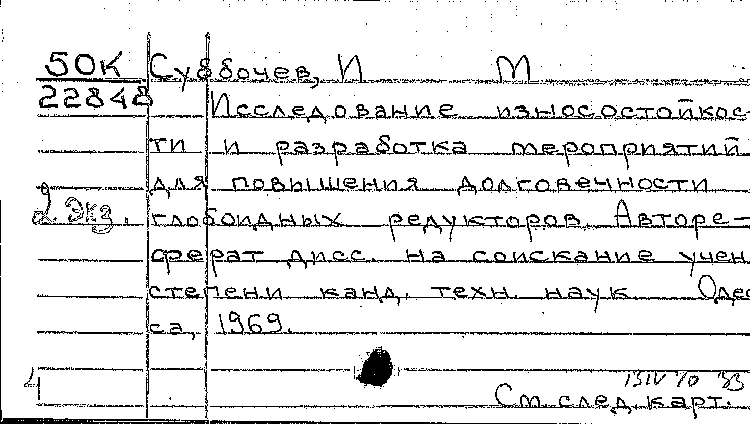 50К Субботчев, И М
22848 Исследование износостойкос-
ти и разработка мероприятий
для повышения долговечности
2 экз. глобоидных редукторов. Авторе-
ферат дисс. на соискание учен
степени канд. техн. наук Одес
са, 1969.
См. след. карт.